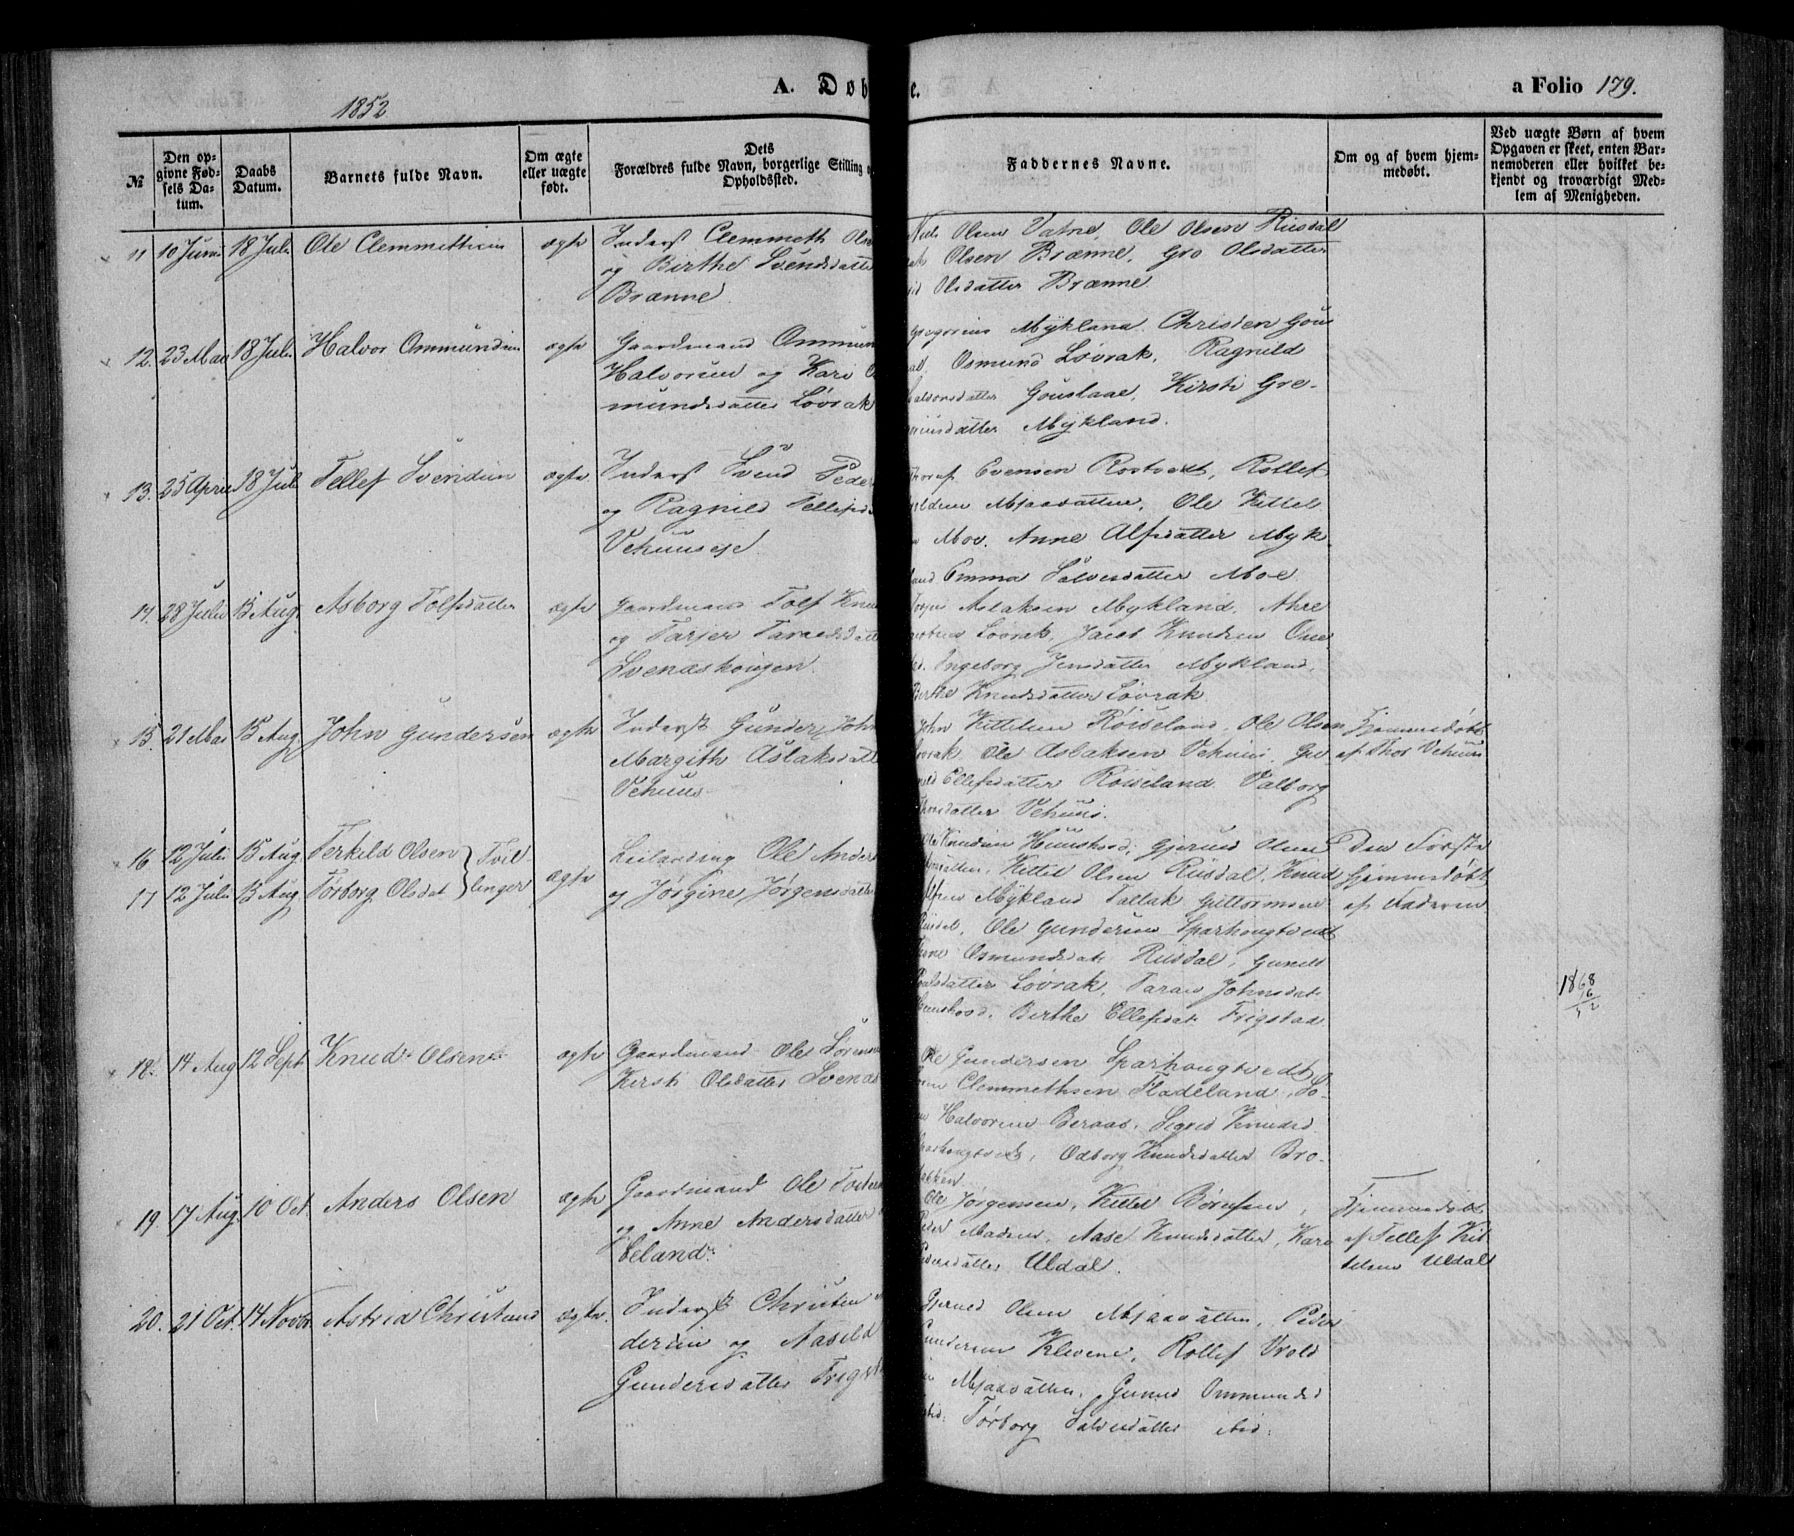 1852
A. Døb
e.
a Folio 179.
№
Den op-
givne Fød-
sels Da-
tum.
Daabs
Datum.
Barnets fulde Navn.
Om ægte
eller uægte
født.
Dets
Forældres fulde Navn, borgerlige Stilling o
Opholdssted.
Faddernes Navne.
Om og af hvem hjem-
medøbt.
Ved uægte Børn af hvem
Opgaven er skeet, enten Bar-
nemoderen eller hvilket be-
kjendt og troværdigt Med-
lem af Menigheden.
11 10 Juni 18 Juli Ole Clemmethsen ægte Inderst Clemmeth Olse
og Birthe Svendsdatte
Brænne.
Olsen Vatne, Ole Olsen Riisdal
Olsen Brænne, Gro Olsdatter
Olsdatter Brænne
12. 23 Mai 18 Juli Halvor Ommundsen ægte Gaardmand Ommun
Halvorsen og Kari O
mundsdatter Løvrak
Gregorius Mykland, Christen Gou
Osmund Løvrak, Ragnild
Gouslaae, Kirsti Gre-
Mykland.
13. 25 April 18 Juli Tellef Svendsen ægte Inderst Svend Peder
og Ragnild Tellefsd
Vehuuseje.
Evensen Rostvedt, Rollef
Mjaavatten, Ole Kittel
Moe. Anne Alfsdatter Myk
land Emma Salvesdatter Moe.
14. 28 Juli 15 Aug. Asborg Tolfsdatter ægte Gaardmand Tolf Knu
og Tarjer Taraldsdatt
Svenaskougen.
Aslaksen Mykland, Ahre
Løvrak, Jacob Knudsen
Ingeborg Jensdatter Mykland,
Birthe Knudsdatter Løvrak
15. 21 Mai 15 Aug John Gundersen ægte Inderst Gunder John
Margith Aslaksdatt
Vehuus
John Kittilsen Røiseland, Ole Olsen
Løvrak, Ole Aslaksen Vehuus, Gu
Ellefsdatter Røiseland Valborg
datter Vehuus.
Hjemmedøbt
af Thor Vehuus
16 12 Juli 15 Aug. Terkild Olsen } Tvil-
17 12 Juli 15 Aug Tørborg Olsdat } linger
ægte Leilænding Ole Ander
og Jørgine Jørgensdatte
Ole Knudsen Huushoud, Gjerund Olsen
Kittel Olsen Riisdal, Knud
Mykland Tallak Guttormsen
Riisdal, Ole Gundersen Sparhougtvedt
Osmundsdat. Riisdal, Gunild
datter Løvrak, Taran Johnsdat.
Birthe Ellefsdat. Frigstad
Den Første
Hjemmedøbt
af Faderen
1868
16
52
18. 14 Aug 12 Sept Knud Olsen ægte Gaardmand Ole Sørens
Kirsti Olsdatter Svenas
Ole Gundersen Sparhougtvedt
Clemmethsen Fladeland, So-
Halvorsen Beraas, Sigrid Knudsd.
Sparhougtvedt, Odborg Knudsdatter Bro-
bakken
19. 17 Aug. 10 Oct. Anders Olsen ægte Gaardmand Ole Tostens
og Anne Andersdatter
Eeland.
Ole Jørgensen, Kittel Børufsen,
Peder Madsen, Aase Knudsdatter, Kare
Pedersdatter Uldal.
Hjemmedøbt
af Tellef Kit-
telsen Uldal
20. 21 Oct. 14 Novbr Astrid Christensd ægte. Inderst Christen
dersen og Aasild
Gundersdatter Frigst
Gjerund Olsen Mjaavatten, Peder
Gundersen Klevene, Rollef Vrold
Mjaavatten, Gunild Ommundsd
Tørborg Salvesdatter ibid.